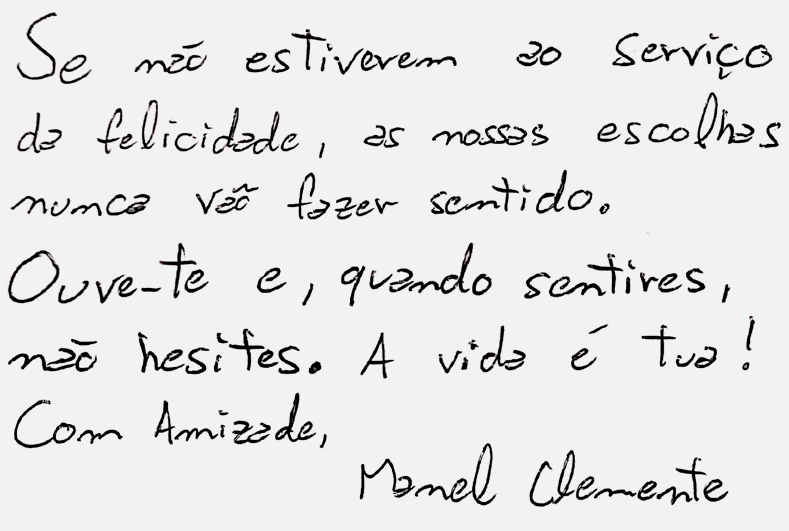 Se não estiverem ao serviço
da felicidade, as nossas escolhas
nunca vão fazer sentido.
Ouve-te e, quando sentires,
não hesites. A vida é tua!
Com Amizade,
Manel Clemente